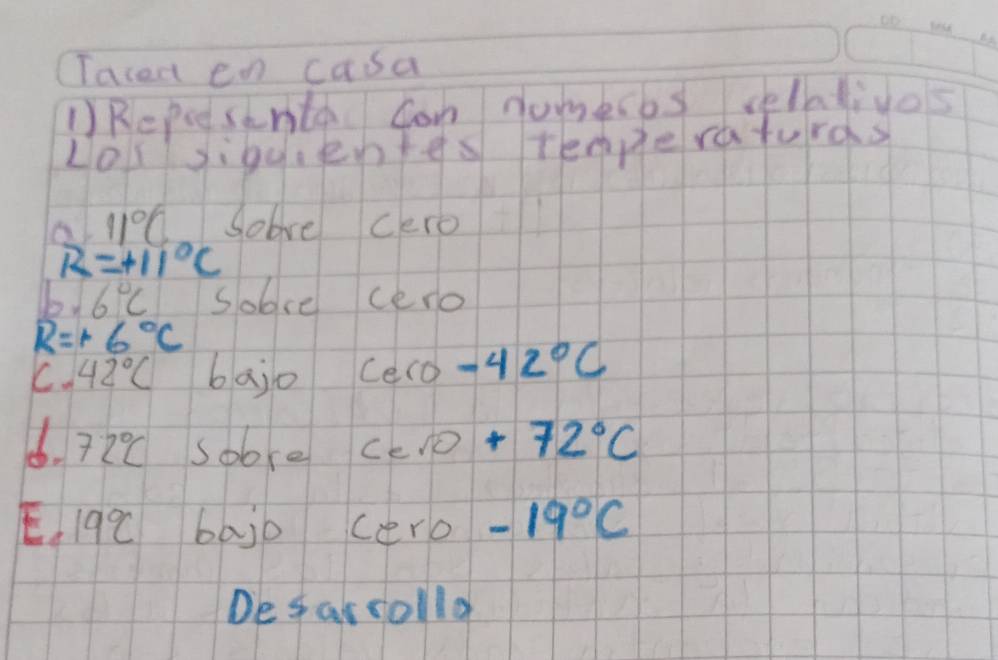 Tarea en casa
1) Representa con numeros relativos
Los siguientes temperaturas
a. 11°C sobre cero
R=+11°C
b. 6°C sobre cero
R=+6°C
c. 42°C bajo cero -42°C
d. 72°C sobre cero + 72°C
E. 19°C bajo cero -19°C
Desarrollo